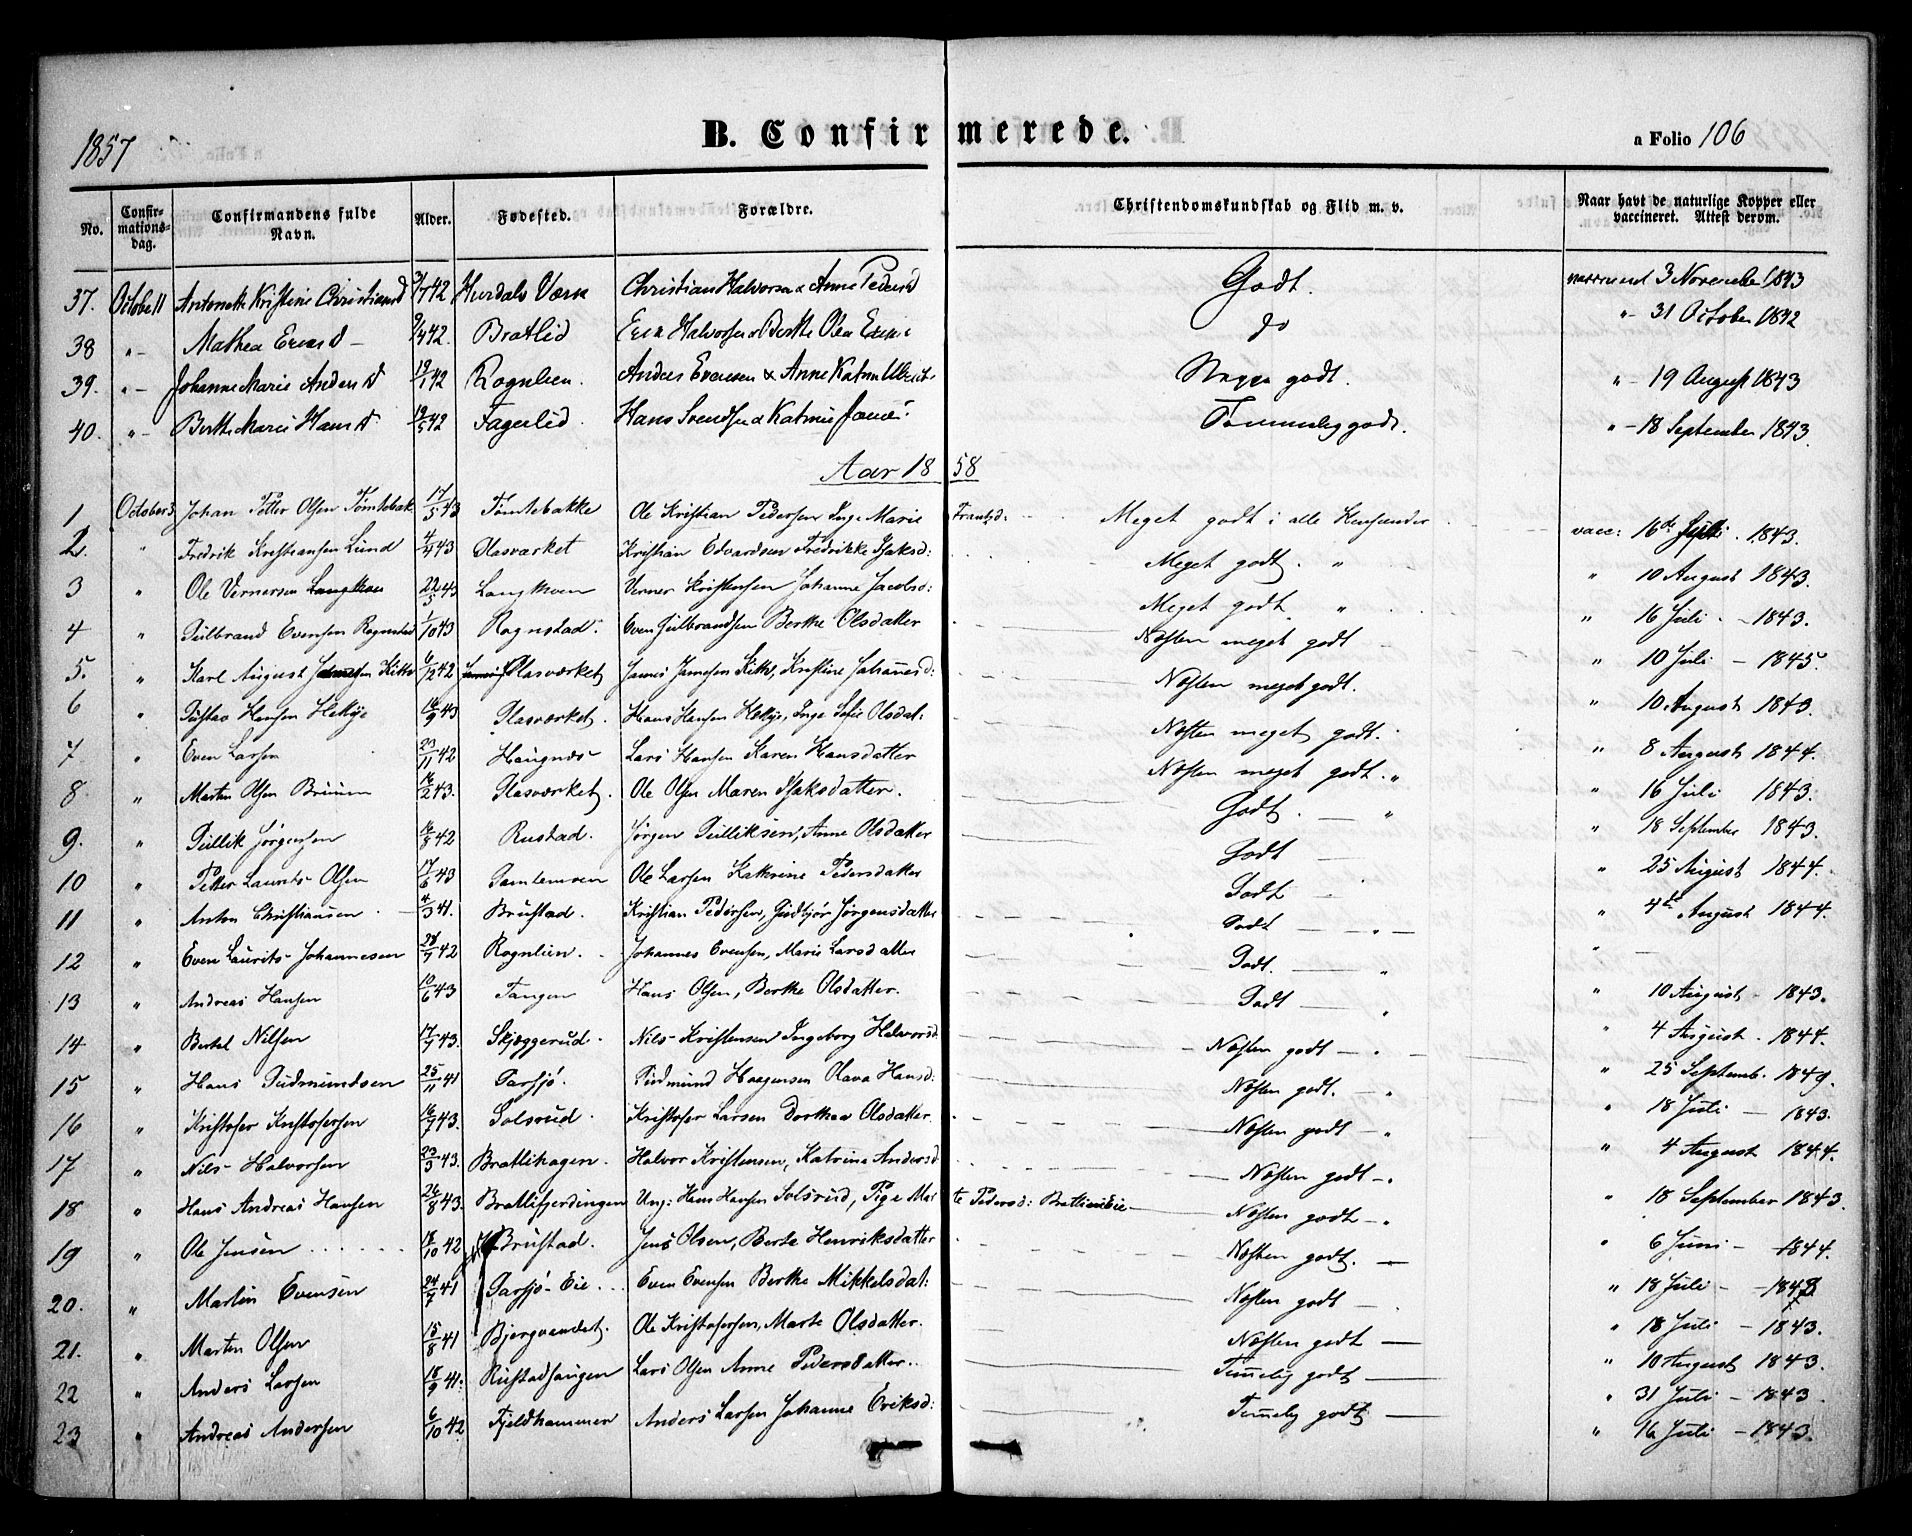 1857
B. Confirmerede.
a Folio 106
No. Confirmationsdag. Confirmandens fulde Navn. Alder. Fødested. Forældre. Christendomskundskab og Flid m. v. Naar havt de naturlige Kopper eller vaccineret. Attest derom.
37. Octobe 11 Antonette Kristine Christians D 3/7 42 Hurdals Værk Christian Halvorsen & Anne Peders D Godt. 3 November 1843
38 " - Mathea Erics D - 9/4 42. Bratlid Eric Halvorsen Berthe Olea do " - 31 October 1842
39. " - Johanne Marie Anders D 19/1 42 Rognlien. Anders Evensen & Anne godt. " - 19 August 1843
40. " - Berthe Marie Hans D 19/5 42 Fagerlid Hans Svendsen & Katrine Temmelig godt. " - 18 September 1843.
Aar 1858
1 October 3 Johan Petter Olsen Tømtebak 17/5 43 Tømtebakke Ole Kristian Pedersen Inge Marie Frantzd: Meget godt i alle Henseender vacc: 16de Juli 1843.
2. " Fredrik Kristiansen Lund 4/4 43 Glasværket Kristian Edvardsen Fredrikke Isaksd: Meget godt. " " 10 August 1843.
3 " Ole Vernersen Langkven 22/5 43 Langkven Verner Kristensen Johanne Jacobsd: Meget godt " " 16 Juli - 1843.
4 " Gulbrand Evensen Rognstad 1/10 43 Rognstad. Even Gulbrandsen Berthe Olsdatter Næsten meget godt " 10 Juli - 1845.
5. " Karl August Jamesen Kittel 6/12 42 Glasværket James Jamesen Kittel, Kristine Johannesd: Næsten meget godt. " 10 August 1843.
6 " Gustav Hansen 16/9 43 Glasværket. Hans Hansen Inge Sofie Olsdat: Næsten meget godt. " 8 August 1844.
7 " Even Larsen 23/11 42 Haugnæs Lars Hansen Karen Hansdatter Næsten meget godt. " " 16 Juli 1843.
8. " Martin Olsen Bruun 16/2 43. Glasværket. Ole Olsen Maren Isaksdatter. Godt. - " " 18 September 1843.
9. " Gullik Jørgensen 16/8 42 Rustad. Jørgen Gulliksen, Anne Olsdatter Godt " 25 August 1844.
10 " Petter Laurits Olsen 17/6 43 Gamlemoen Ole Larsen Katrine Pedersdatter Godt " 4de August 1844.
11 " Anton Christiansen 4/3 41. Brustad. Kristian Pedersen, Gudbjør Jørgensdatter Godt - " - "
12 " Even Laurits Johannesen 28/7 42 Rognlien. Johannes Evensen, Marie Larsdatter Godt. - " " 10 August - 1843.
13 " Andreas Hansen 10/6 43 Tangen Hans Olsen, Berthe Olsdatter. Godt - " " 4 August. 1844.
14 " Bertel Nilsen 17/7 43. Skjæggerud. Nils Kristensen Ingeborg Halvorsd. Næsten godt - " " 25 Septemb. 1849.
15 " Hans Gudmundsen 25/11 41 Garsjø. Gudmund Haagensen Olava Hansd: Næsten godt. - " " 18 Juli - 1843.
16 " Kristofer Kristofersen 16/7 43. Solsrud. Kristofer Larsen Dorthea Olsdatter. Næsten godt - " " 4 August 1844.
17 " Nils Halvorsen 23/3 43. Bratlihagen. Halvor Kristensen, Katrine Andersd. Næsten godt -. " 18 September 1843.
18 " Hans Andreas Hansen 26/8 43. Bratlifjerdingen Ung: Hans Hansen Solsrud, Pige Marte Pedersd: Bratlieneie Næsten godt -. " 6 Juni - 1844.
19 " Ole Jensen 18/10 42 Brustad. Jens Olsen, Berte Henriksdatter Næsten godt. - " 18 Juli - 1843
20. " Martin Evensen 24/7 41 Garsjø-Eie Even Evensen Berthe Mikkelsdat: Næsten godt -. " 18 Juli - 1843.
21. " Martin Olsen 15/8 41 Bjørgvandet. Ole Kristofersen, Marte Olsdatter. Næsten godt - " 10 August 1843.
22 " Anders Larsen 18/9 41. Rustadhaugen Lars Olsen Anne Pedersdatter. Temmelig godt - " 31 Juli - 1843
23 " Andreas Andersen 6/10 42 Fjeldhammer Anders Larsen Johanne Eriksd: Temmelig godt - " 16 Juli - 1843.